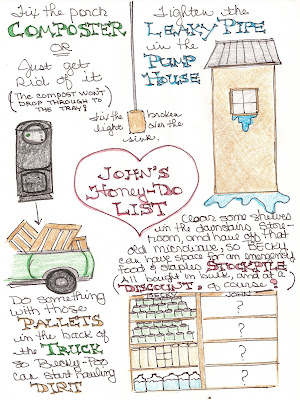 Fix the porch
COMPOSTER
OR
Just get
Rid of it
(THE COMPOST WON'T
DROP THROUGH TO
THE TRAY!)
Tighten the
LEAKY PIPE
in the
PUMP
HOUSE
fix the broken
light over the
sink.
JOHN'S
Honey-Do
LIST
Clear some shelves
in the downstairs Store-
Room, and haul off that
old microwave, so BECKY
can have space for an emergency
food & staples STOCKPILE
(All bought in bulk, and at a
DISCOUNT, of course!)
JOHN
?
?
?
?
Do something
with those
PALLETS
in the back of
the TRUCK
so Becky-Poo
can start hauling
DIRT